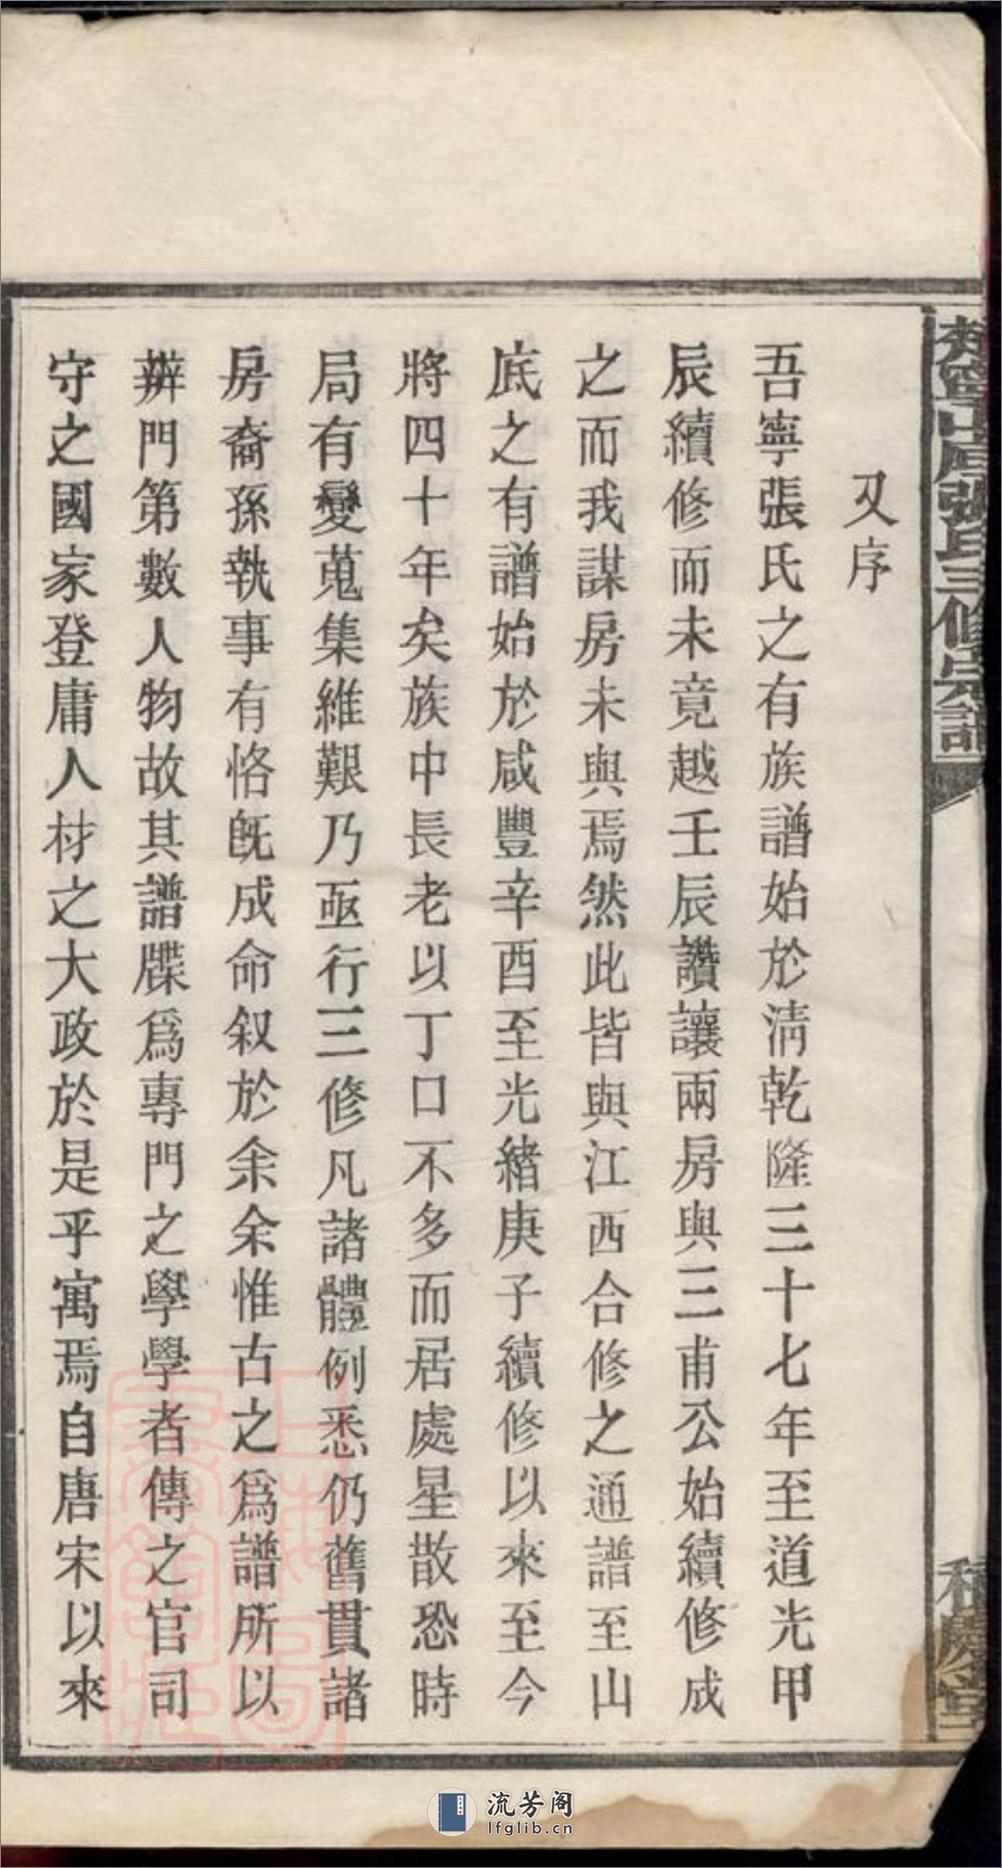 又序
吾寧張氏之有族譜始於清乾隆三十七年至道光甲
辰續修而未竟越壬辰讚讓兩房與三甫公始續修成
之而我謀房未與焉然此皆與江西合修之通譜至山
底之有譜始於咸豐辛酉至光緒庚子續修以來至今
將四十年矣族中長老以丁口不多而居處星散恐時
局有變蒐集維艱乃亟行三修凡諸體例悉仍舊貫諸
房裔孫執事有恪既成命叙於余余惟古之爲譜所以
辨門第數人物故其譜牒爲專門之學學者傳之官司
守之國家登庸人材之大政於是乎寓焉自唐宋以來
山底張氏三修宗譜
流芳阁
lfglib.cn